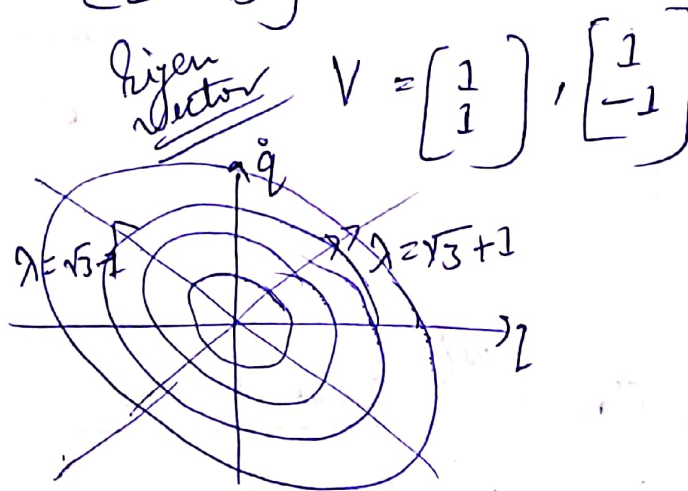 Eigen
Vector
V = [1 1], [1 -1]
q̇
λ=√3-1
λ=√3+1
q